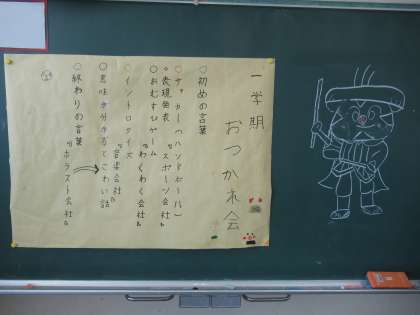 一学期
おつかれ会
○初めの言葉
○サッカー(ハンドボール)
○表現発表『スポーツ会社』
○おむすびゲーム『わくわく会社』
○イントロクイズ『音楽会社』
○意味が分かるとこわい話
○終わりの言葉『ホラスト会社』